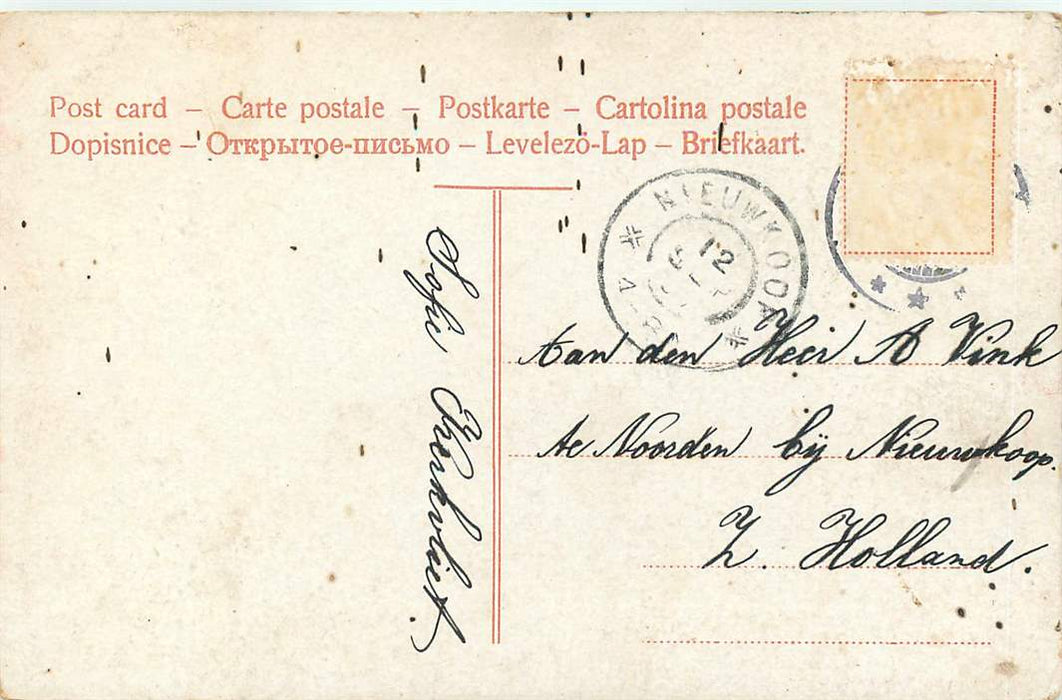 Post card – Carte postale – Postkarte – Cartolina postale
Dopisnice – Открытое-письмо – Levelező-Lap – Briefkaart.
NIEUWKOOP
12
Aan den Heer A Vink
te Noorden bij Nieuwkoop.
Z. Holland.
Sofie